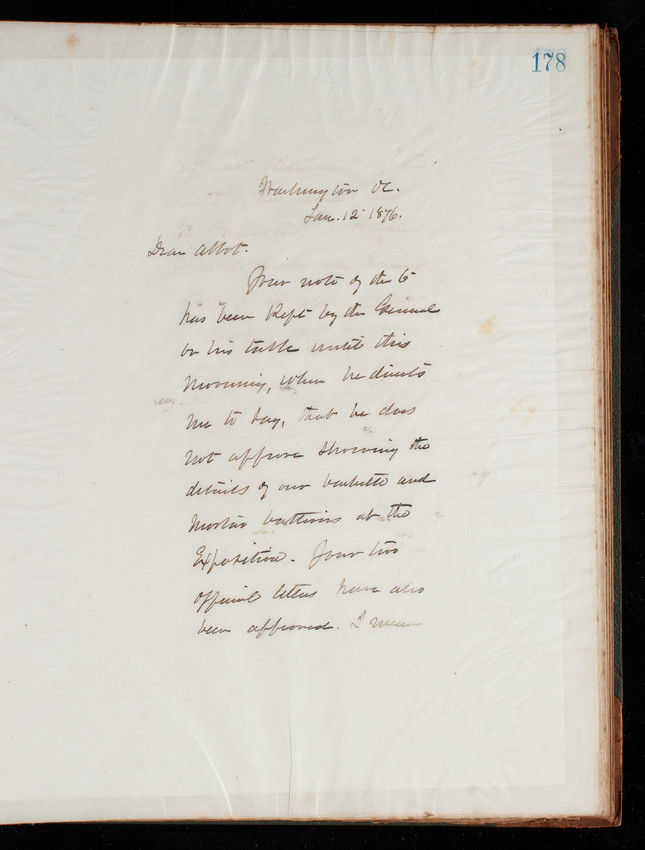 178
Washington DC.
Jan. 12 1876.
Dear Abbot.
Your note of the 6
has been kept by the General
on his table until this
morning, when he directs
me to say, that he does
not approve showing the
details of our barbette and
mortar batteries at the
Exposition. Your two
official letters have also
been approved. I mean